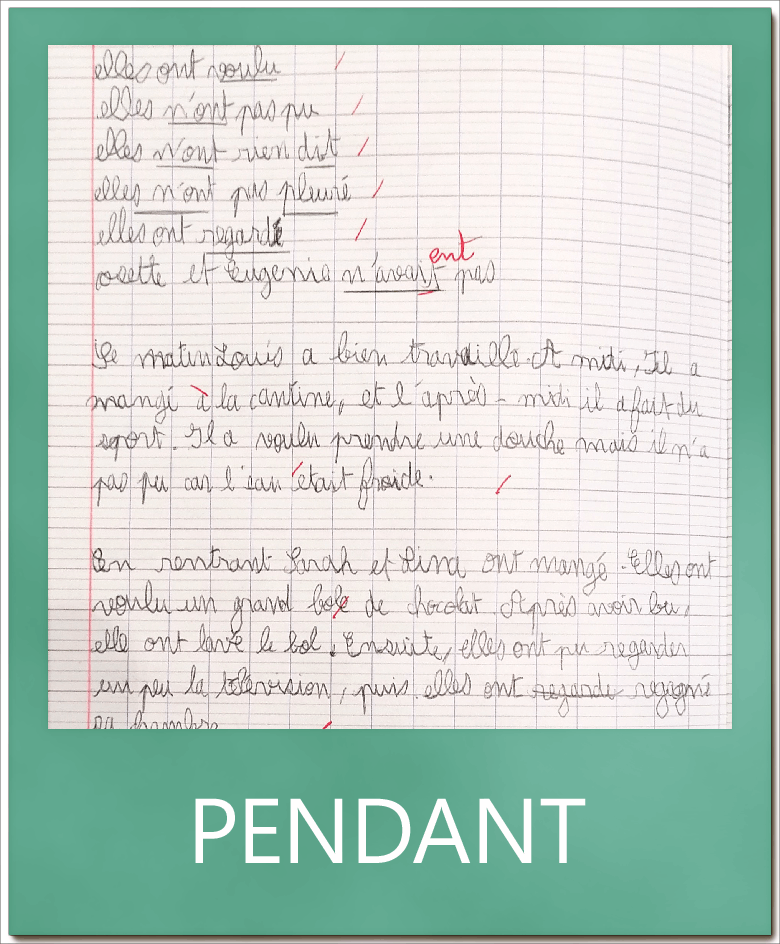 elles ont voulu
elles n'ont pas pu
elles n'ont rien dit
elles n'ont pas pleuré
elles ont regardé
ent
osette et Eugenie n'avait pas
Le matin Louis a bien travaillé. A midi, Il a
mangé à la cantine, et l'après-midi il a fait du
sport. Il a voulu prendre une douche mais il n'a
pas pu car l'eau était froide.
En rentrant Sarah et Lina ont mangé. Elles ont
voulu un grand bole de chocolat. Après avoir bu,
elle ont lavé le bol. Ensuite, elles ont pu regarder
un peu la télévision, puis elles ont regardé regagné
sa chambre
PENDANT